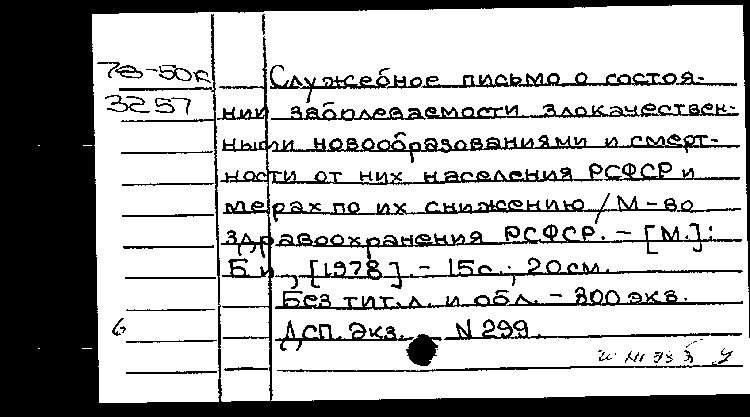 78-50к
3257
Служебное письмо о состоя-
нии заболеваемости злокачествен-
ными новообразованиями и смерт-
ности от них населения РСФСР и
мерах по их снижению / М-во
здравоохранения РСФСР. - [М.]:
Б.и., [1978]. - 15с.; 20см.
Без тит.л. и обл. - 300 экз.
ДСП. Экз. N 299.
6